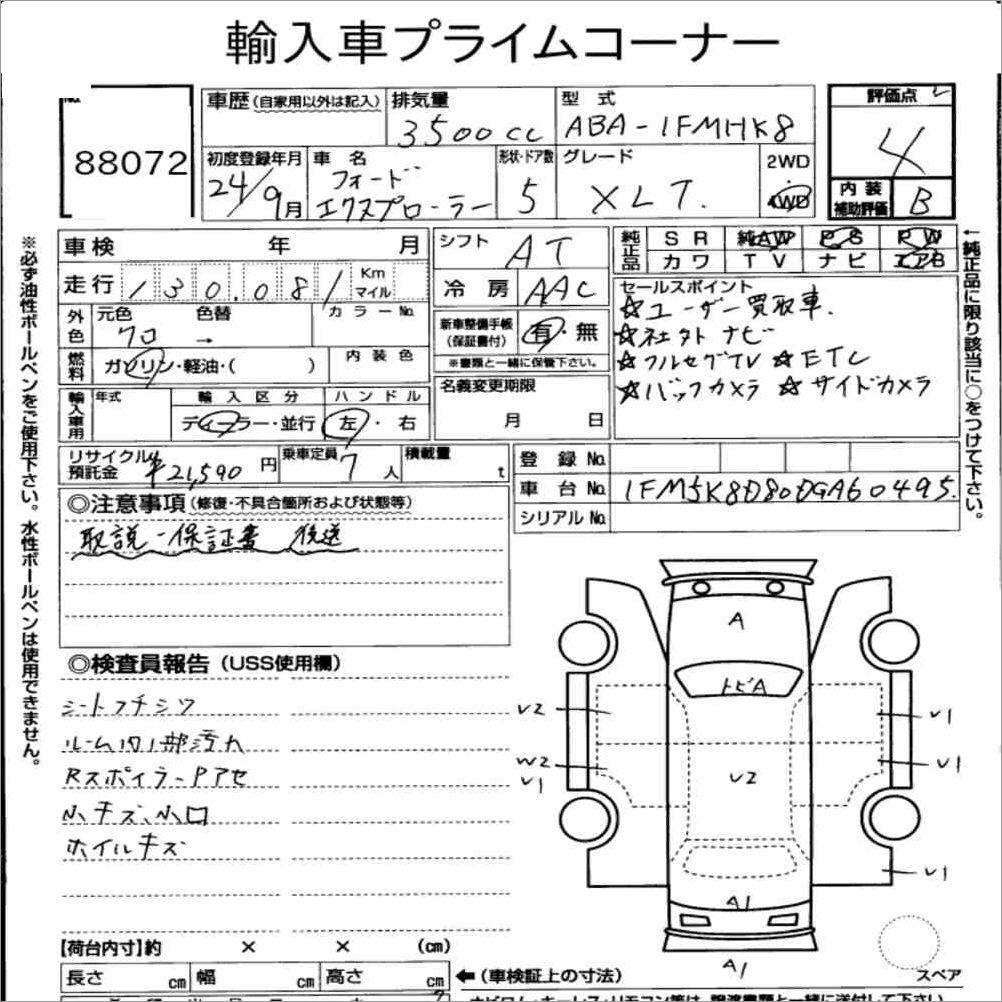 輸入車プライムコーナー
88072
車歴(自家用以外は記入)
排気量
3500cc
型式
ABA-1FMHK8
評価点
4
内装
補助評価
B
初度登録年月
24/9月
車名
フォード
エクスプローラー
形状・ドア数
5
グレード
XLT.
2WD
・
4WD
※必ず油性ボールペンをご使用下さい。水性ボールペンは使用できません。
車検 年 月
走行 130.081 Km マイル
外色 元色 色替 カラーNo.
クロ →
燃料 ガソリン・軽油・( ) 内装色
輸入車用 年式 輸入区分 ハンドル
ディーラー・並行 左・右
リサイクル預託金 ¥21,590 円 乗車定員 7人 積載量 t
シフト AT
冷房 AAC
新車整備手帳(保証書付) 有・無
※書類と一緒に保管下さい。
名義変更期限
月 日
純正品 SR 純AW PS PW
カワ TV ナビ エアB
セールスポイント
☆ユーザー買取車.
☆社外ナビ
☆フルセグTV ☆ETC
☆バックカメラ ☆サイドカメラ
←純正品に限り該当に○をつけて下さい。
登録No.
車台No. 1FM5K8D80DGA60495.
シリアルNo.
◎注意事項(修復・不具合箇所および状態等)
取説-保証書 後送
◎検査員報告(USS使用欄)
シートフチシワ
ルーム内1部汚れ
RスポイラーPアセ
小キズ、小凹
ホイルキズ
A
トビA
V2
W2
V1
V2
V1
V1
V1
A1
A1
スペア
【荷台内寸】約 × × (cm)
長さ cm 幅 cm 高さ cm
←(車検証上の寸法)